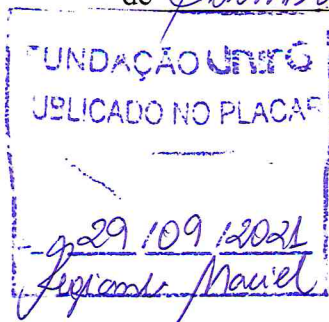 de
FUNDAÇÃO UnirG
PUBLICADO NO PLACAR
29 / 09 / 2021
Maciel